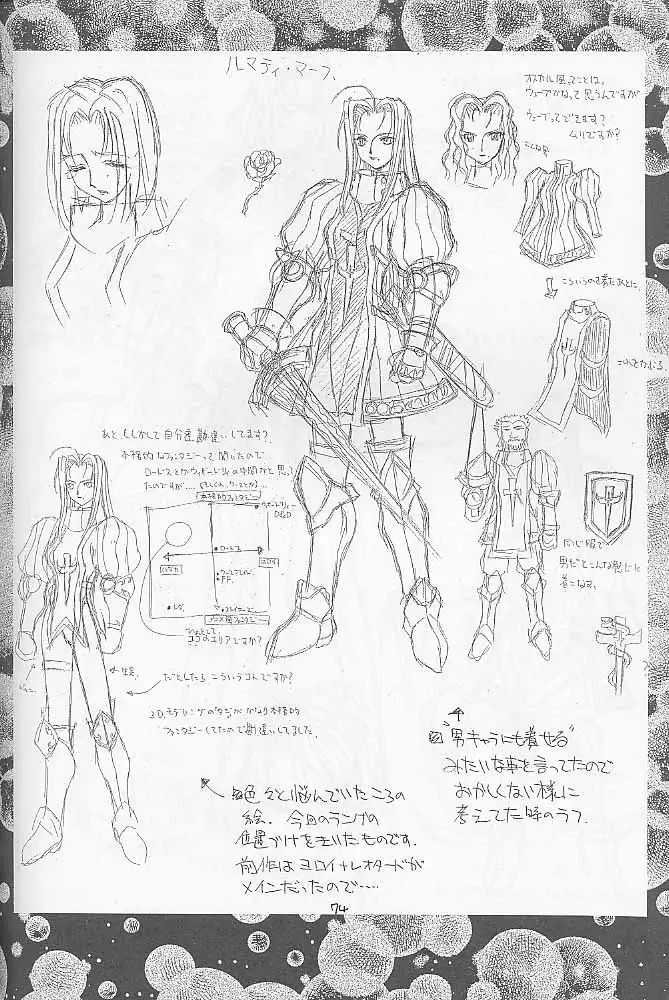 ルマティ・マーフ
オスカル風ってことは、
ウェーブかなって思うんですが
ウェーブってできます?
ムリですか?
こんな
こういうの着たあとに、
これをかぶる。
あと、もしかして自分達勘違いしてます?
本格的なファンタジーって聞いたので
ロードスとかウィザードリィの中間かと思って
たのですが……
本格的ファンタジー
ウィザードリィー
D&D
ロードス
FF.
アニメ的ファンタジー
ひょっとして
ココのエリアですか?
同じ服で
男だとこんな感じに
着こなす。
だとしたら こういうコですか?
3D.モデリングのタジがかなり本格的
ファンタジーしてたので勘違いしてました。
"男キャラにも着せる"
みたいな事を言ってたので
おかしくない様に
考えてた時のラフ.
色々と悩んでいたころの
絵. 今回のランプの
位置づけをきいたものです.
前作はヨロイ+レオタードが
メインだったので……
74